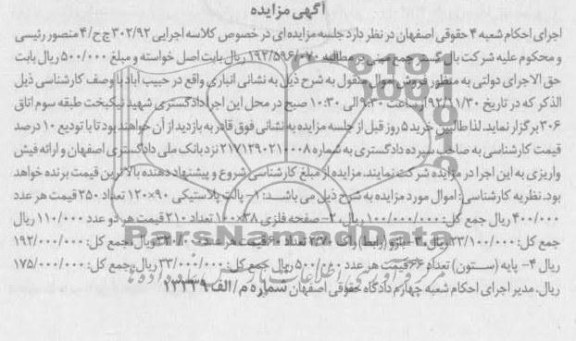 آگهی مزایده
اجرای احکام شعبه ۴ حقوقی اصفهان در نظر دارد جلسه مزایده ای در خصوص کلاسه اجرایی ۳۰۲/۹۲ ج ح/۴ منصور رئیسی
و محکوم علیه شرکت مطالبه ریال بابت اصل خواسته و مبلغ ۵۰۰/۰۰۰ ریال بابت
حق الاجرای دولتی به منظور فروش اموال منقول به شرح ذیل به نشانی انباری واقع در حبیب آباد با وصف کارشناسی ذیل
الذکر که در تاریخ ساعت ۹:۳۰ الی ۱۰:۳۰ صبح در محل این اجرا دادگستری شهید نیکبخت طبقه سوم اتاق
۳۰۶ برگزار نماید. لذا طالبین خرید ۵ روز قبل از جلسه مزایده به نشانی فوق قادر به بازدید از آن خواهند بود تا با تودیع ۱۰ درصد
قیمت کارشناسی به صاحب سپرده دادگستری به شماره ۲۱۷۱۲۹۰۲۱۰۰۰۸ نزد بانک ملی دادگستری اصفهان و ارائه فیش
واریزی به این اجرا در مزایده شرکت نمایند. مزایده از مبلغ کارشناسی شروع و پیشنهاد دهنده بالاترین قیمت برنده خواهد
بود. نظریه کارشناسی: اموال مورد مزایده به شرح ذیل می باشد: ۱- پالت پلاستیکی ۹۰×۱۲۰ تعداد ۲۵۰ قیمت هر عدد
۴۰۰/۰۰۰ ریال جمع کل: ۱۰۰/۰۰۰/۰۰۰ ریال ۲- صفحه فلزی ۳۸×۱۰۰ تعداد ۲۱۰ قیمت هر دو عدد ۱۱۰/۰۰۰ ریال
جمع کل: ۲۳/۱۰۰/۰۰۰ ریال ۳- بازو (رابط) راک تعداد قیمت هر عدد ریال جمع کل: ۱۹۲/۰۰۰/۰۰۰
ریال ۴- پایه (ستون) تعداد ۶۶ قیمت هر عدد ۵۰۰/۰۰۰ ریال جمع کل: ۳۳/۰۰۰/۰۰۰ ریال جمع کل: ۱۷۵/۰۰۰/۰۰۰
ریال. مدیر اجرای احکام شعبه چهارم دادگاه حقوقی اصفهان شماره م/الف ۱۳۲۳۹
ParsNamadData